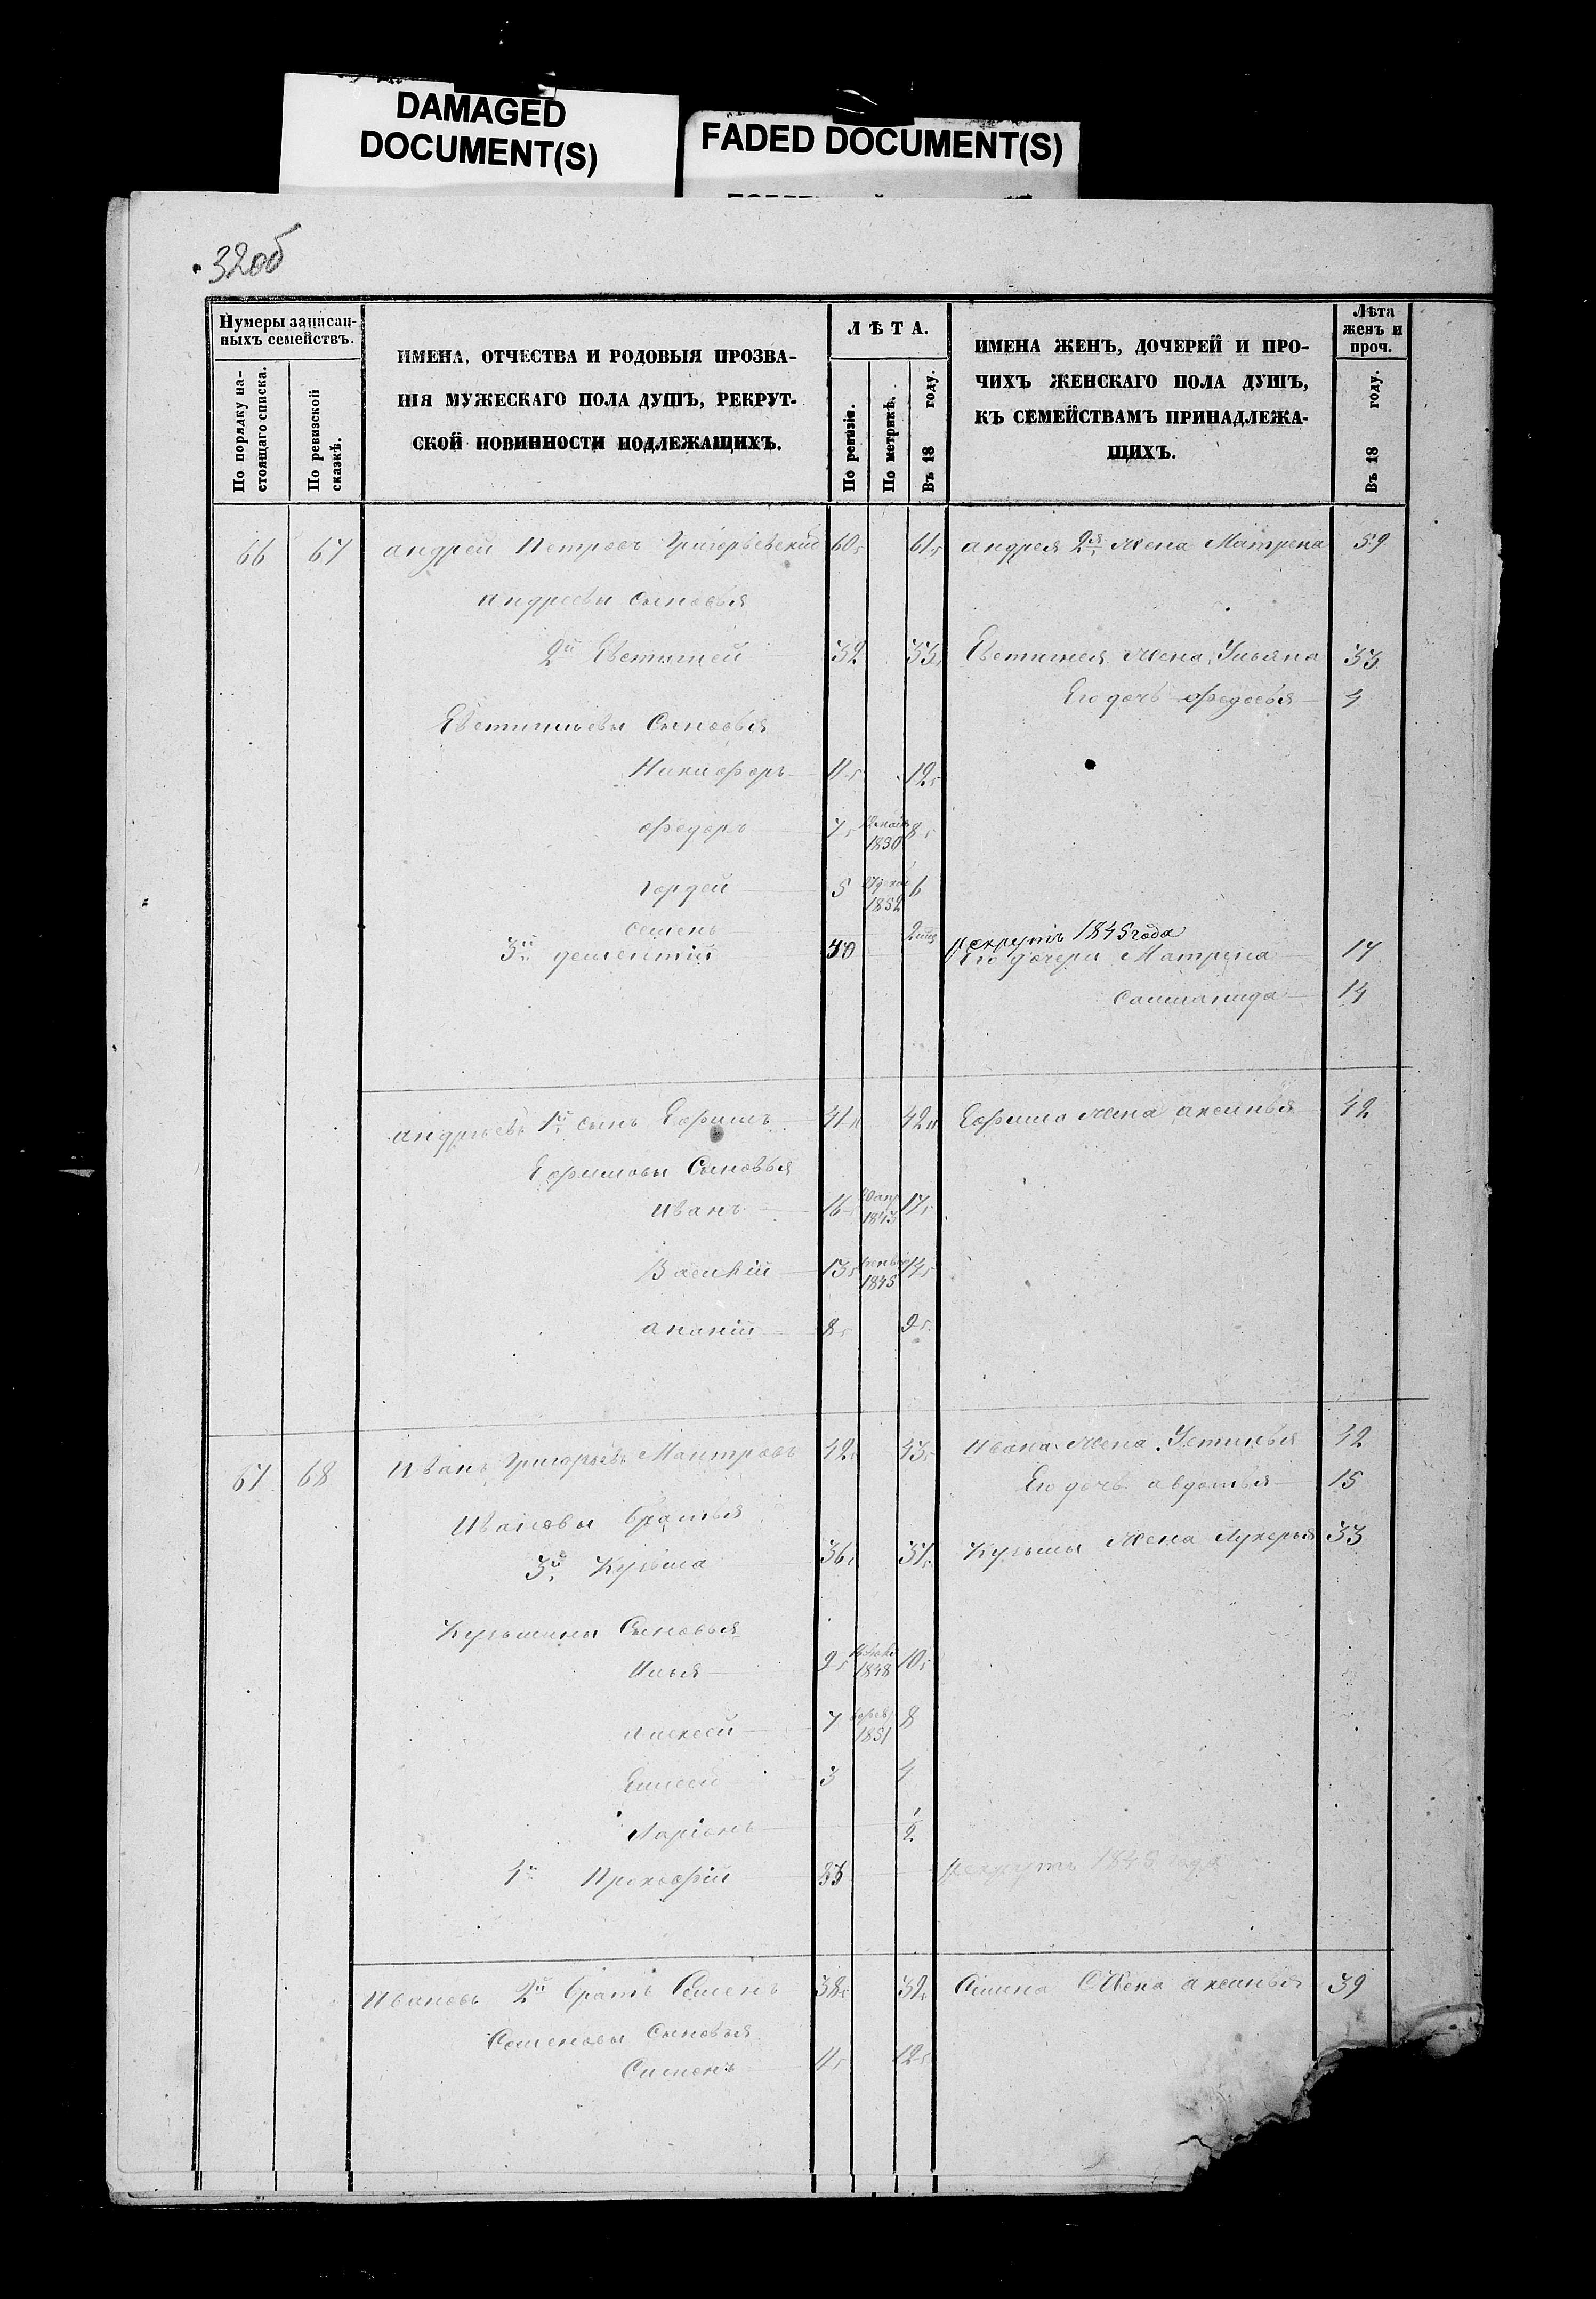 DAMAGED
DOCUMENT(S)
FADED DOCUMENT(S)
32об
Нумеры записан-
ныхъ семействъ.
По порядку на-
стоящаго списка.
По ревизской
сказкѣ.
ИМЕНА, ОТЧЕСТВА И РОДОВЫЯ ПРОЗВА-
НІЯ МУЖЕСКАГО ПОЛА ДУШЪ, РЕКРУТ-
СКОЙ ПОВИННОСТИ ПОДЛЕЖАЩИХЪ.
ЛѢТА.
По ревизіи.
По метрикѣ.
Въ 18 году.
ИМЕНА ЖЕНЪ, ДОЧЕРЕЙ И ПРО-
ЧИХЪ ЖЕНСКАГО ПОЛА ДУШЪ,
КЪ СЕМЕЙСТВАМЪ ПРИНАДЛЕЖА-
ЩИХЪ.
Лѣта
женъ и
проч.
Въ 18 году.
66 67 Андрей Петровъ Григорьевскій 60 61 Андрея 2я жена Матрена 59
Андреевы сыновья
2й Евстигней 32 33 Евстигнея жена Ульяна 33
Его дочь Федосья 4
Евстигнеевы Сыновья
Никифоръ 11 12
Федоръ 7 1850 8
Гордей 5 1852 6
Семенъ
рекрутъ 1845 года
3й Дементій 40 Его дочери Матрена 17
Соломанида 14
Андреевъ 1й сынъ Ефимъ 41 42 Ефима жена Аксинья 42
Ефимовы Сыновья
Иванъ 16 20 апр 1843 17
Василій 13 1845 14
Ананій 8 9
67 68 Иванъ Григорьевъ Мантровъ 42 43 Ивана жена Устинья 42
Его дочь Авдотья 15
Ивановы братья
3й Кузьма 36 37 Кузьмы жена Лукерья 33
Кузьмины Сыновья
Илья 9 1848 10
Алексей 7 1851 8
Елисей 3 4
Ларіонъ 1/2
4й Прокофій 33 рекрутъ 1848 года
Ивановъ 2й братъ Семенъ 38 39 Семена Жена Аксинья 39
Семеновы Сыновья
Симонъ 11 12